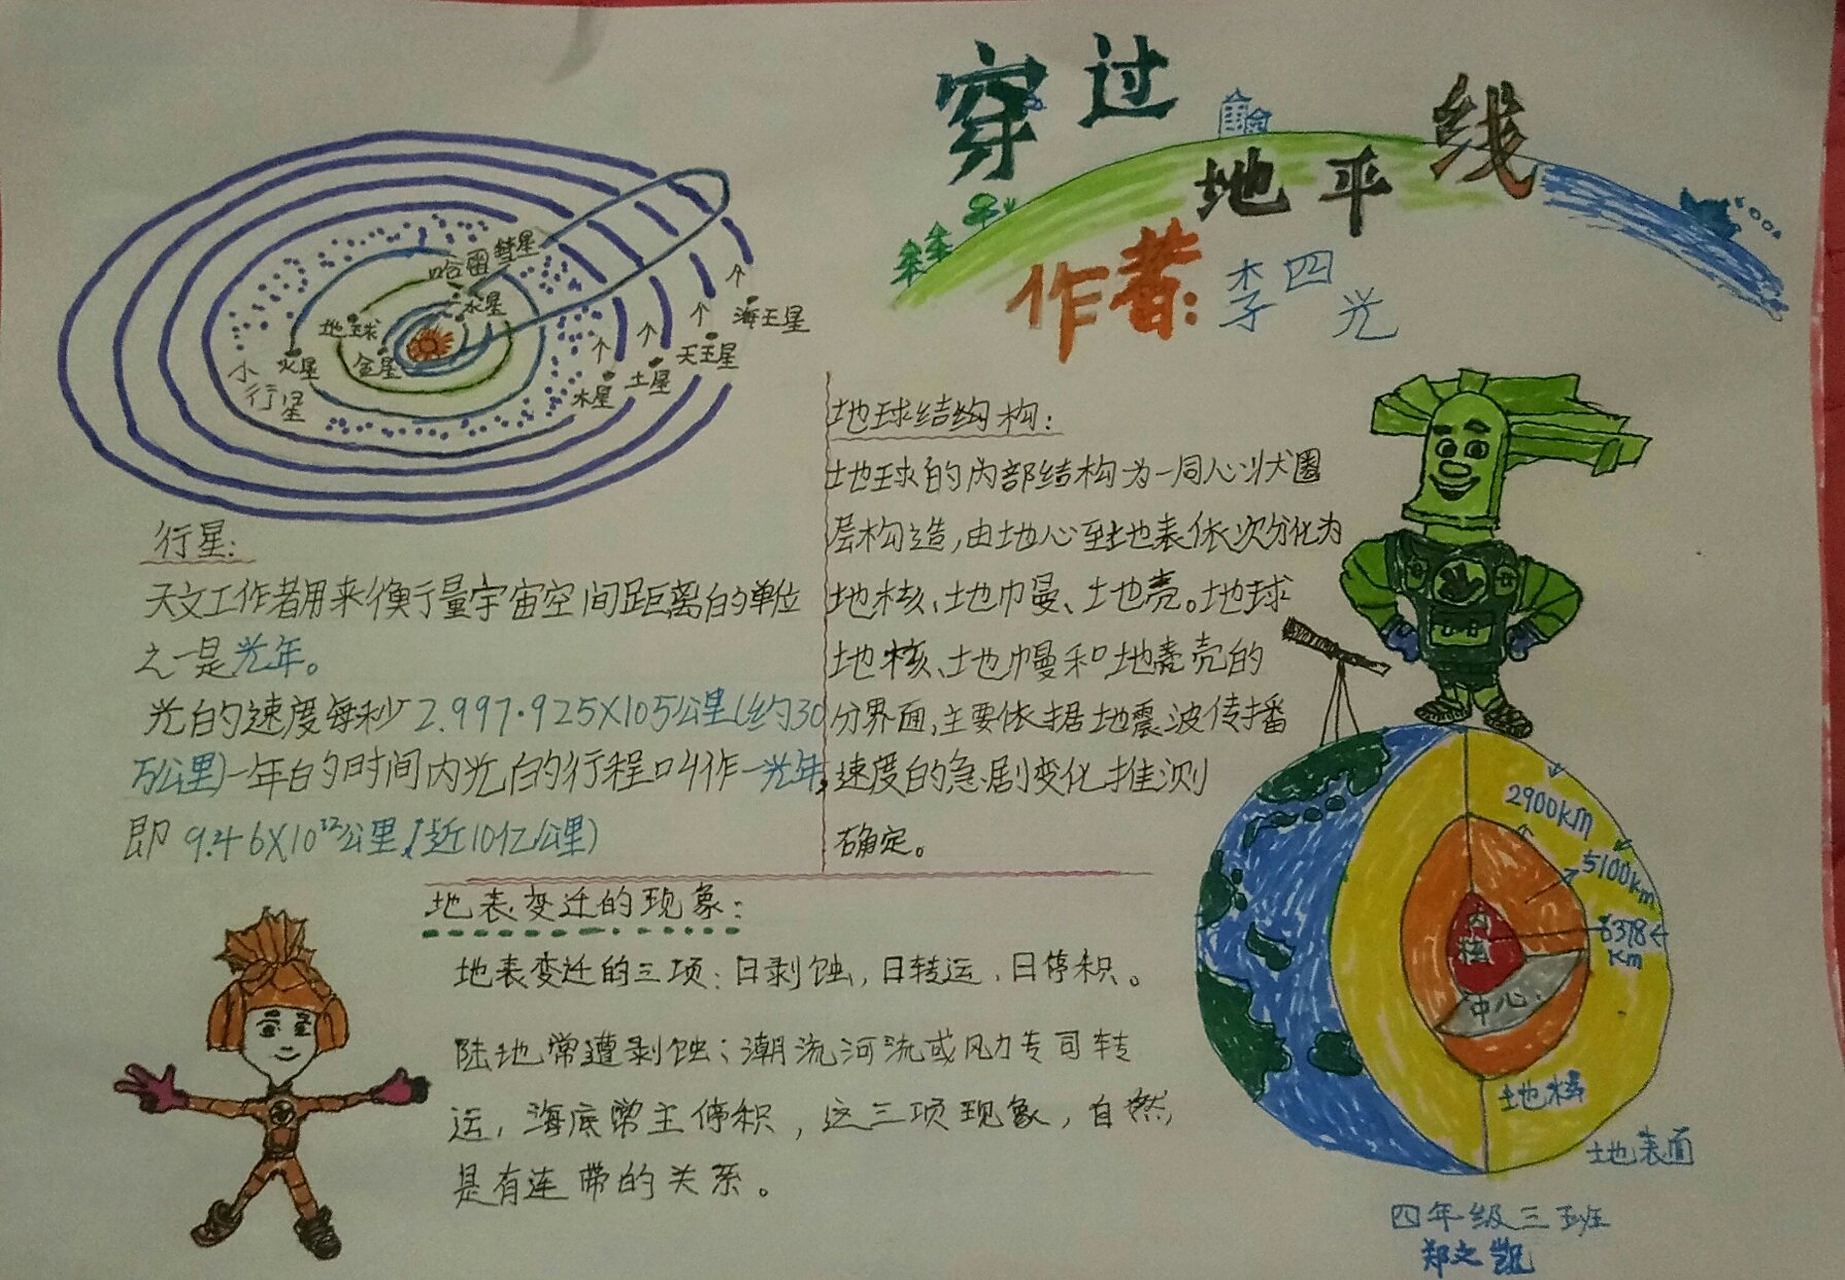 穿过
地平线
作者:李四光
哈雷彗星
水星
地球
金星
火星
小行星
木星
土星
天王星
海王星
行星:
天文工作者用来衡量宇宙空间距离的单位
之一是光年。
光的速度每秒2.997.925X105公里(约30
万公里)一年的时间内光的行程叫作一光年,
即9.46X10¹²公里,(近10亿公里)
地球结构构:
地球的内部结构为一同心状圈
层构造,由地心至地表依次分化为
地核、地巾曼、土地壳。地球
地核、地幔和地壳的
分界面,主要依据地震波传播
速度的急剧变化推测
确定。
地表变迁的现象:
地表变迁的三项:日剥蚀,日转运、日停积。
陆地常遭剥蚀;潮流河流或风力专司转
运,海底常主停积,这三项现象,自然,
是有连带的关系。
2900km
5100km
6378
km
内核
中心
地表面
四年级三班
郑文凯